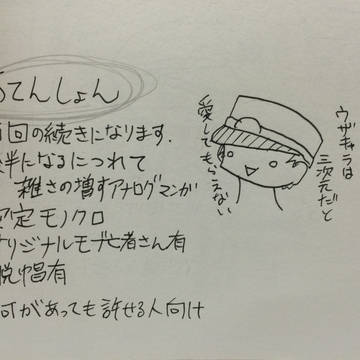 てんしょん
回の続きになります.
半になるにつれて
雑さの増すアナログマンガ
定モノクロ
リジナルモブ七者さん有
脱唱有
何があっても許せる人向け
ウザキャラは
三次元だと
愛してもらえない